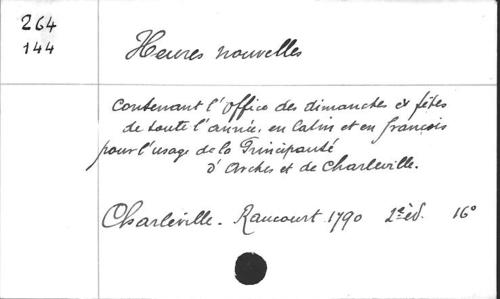 264
144
Heures nouvelles
contenant l'Office des dimanches et fêtes
de toute l'année, en latin et en françois
pour l'usage de la Principauté
d'Arches et de Charleville.
Charleville. Raucourt 1790 2e éd. 16°